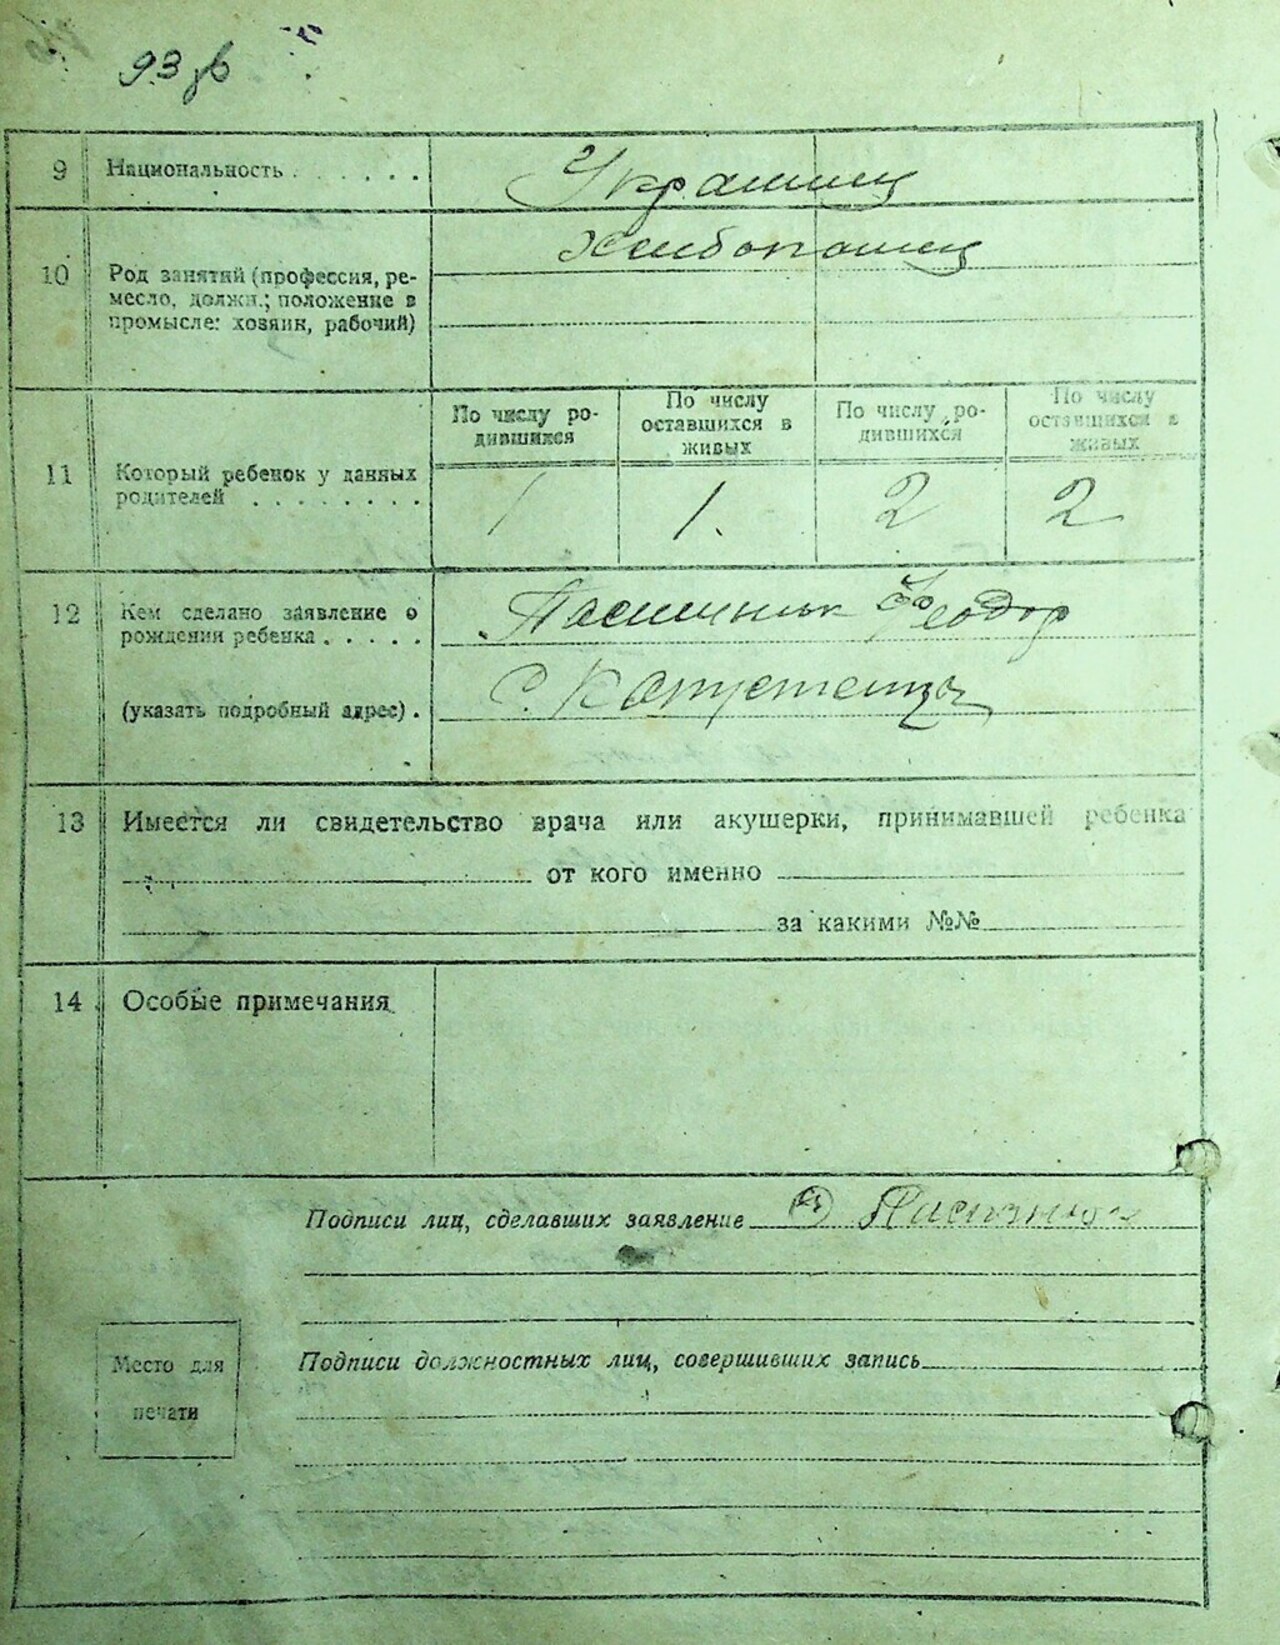 93 зв
9 Национальность . . . . . . Украинец
10 Род занятий (профессия, ре-
месло, должн.; положение в
промысле: хозяин, рабочий)
Хлебопашец
По числу ро-
дившихся
По числу
оставшихся в
живых
По числу ро-
дившихся
По числу
оставшихся в
живых
11 Который ребенок у данных
родителей . . . . . . . .
1 1. 2 2
12 Кем сделано заявление о
рождении ребенка . . . . .
Пасичнык Феодор
(указать подробный адрес) .
С. Капустенцы
13 Имеется ли свидетельство врача или акушерки, принимавшей ребенка
от кого именно
за какими №№
14 Особые примечания
Подписи лиц, сделавших заявление Ф Пасичнык
Место для
печати
Подписи должностных лиц, совершивших запись